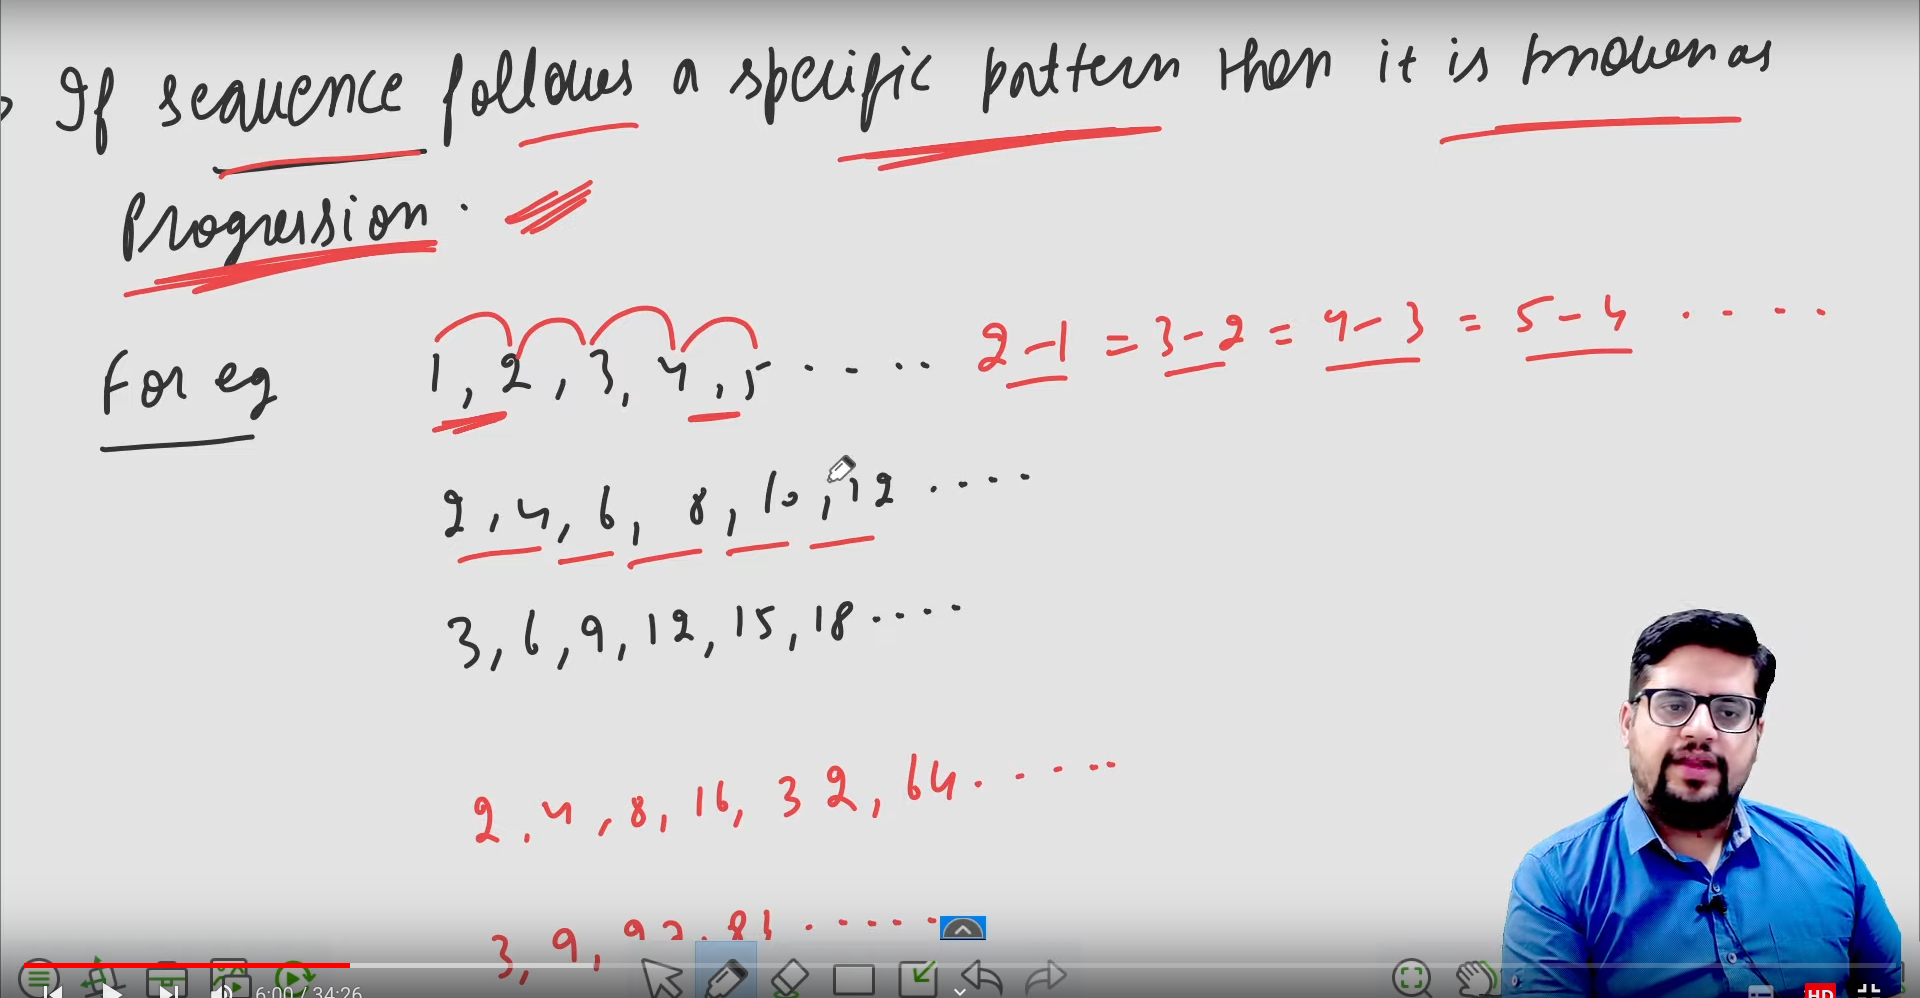 If sequence follows a specific pattern then it is known as
Progression.
For eg 1, 2, 3, 4, 5 ..... 2-1 = 3-2 = 4-3 = 5-4 ....
2, 4, 6, 8, 10, 12 ....
3, 6, 9, 12, 15, 18 ....
2, 4, 8, 16, 32, 64 .....
3, 9, 27, 81 .....
6:00 / 34:26
HD